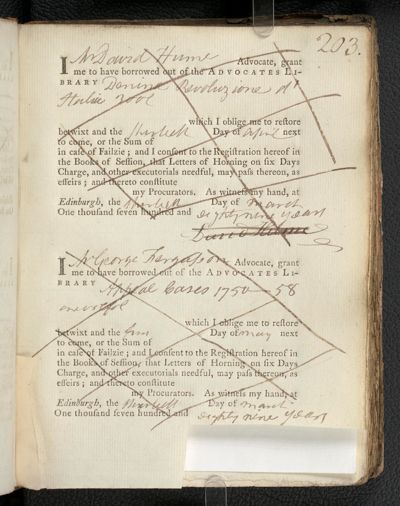 203.
I Mr David Hume Advocate, grant
me to have borrowed out of the ADVOCATES LI-
BRARY Denina Revoluzione d'
Italia 3 vol
which I oblige me to reſtore
betwixt and the Day of April next
to come, or the Sum of
in caſe of Failzie; and I conſent to the Regiſtration hereof in
the Books of Seſſion, that Letters of Horning on ſix Days
Charge, and other executorials needful, may paſs thereon, as
effeirs; and thereto conſtitute
my Procurators. As witneſs my hand, at
Edinburgh, the Day of March
One thouſand ſeven hundred and eighty nine years
David Hume
I Mr George Fergusson Advocate, grant
me to have borrowed out of the ADVOCATES LI-
BRARY Appeal Cases 1750—58
one vol
which I oblige me to reſtore
betwixt and the Day of May next
to come, or the Sum of
in caſe of Failzie; and I conſent to the Regiſtration hereof in
the Books of Seſſion, that Letters of Horning on ſix Days
Charge, and other executorials needful, may paſs thereon, as
effeirs; and thereto conſtitute
my Procurators. As witneſs my hand, at
Edinburgh, the Day of March
One thouſand ſeven hundred and eighty nine years